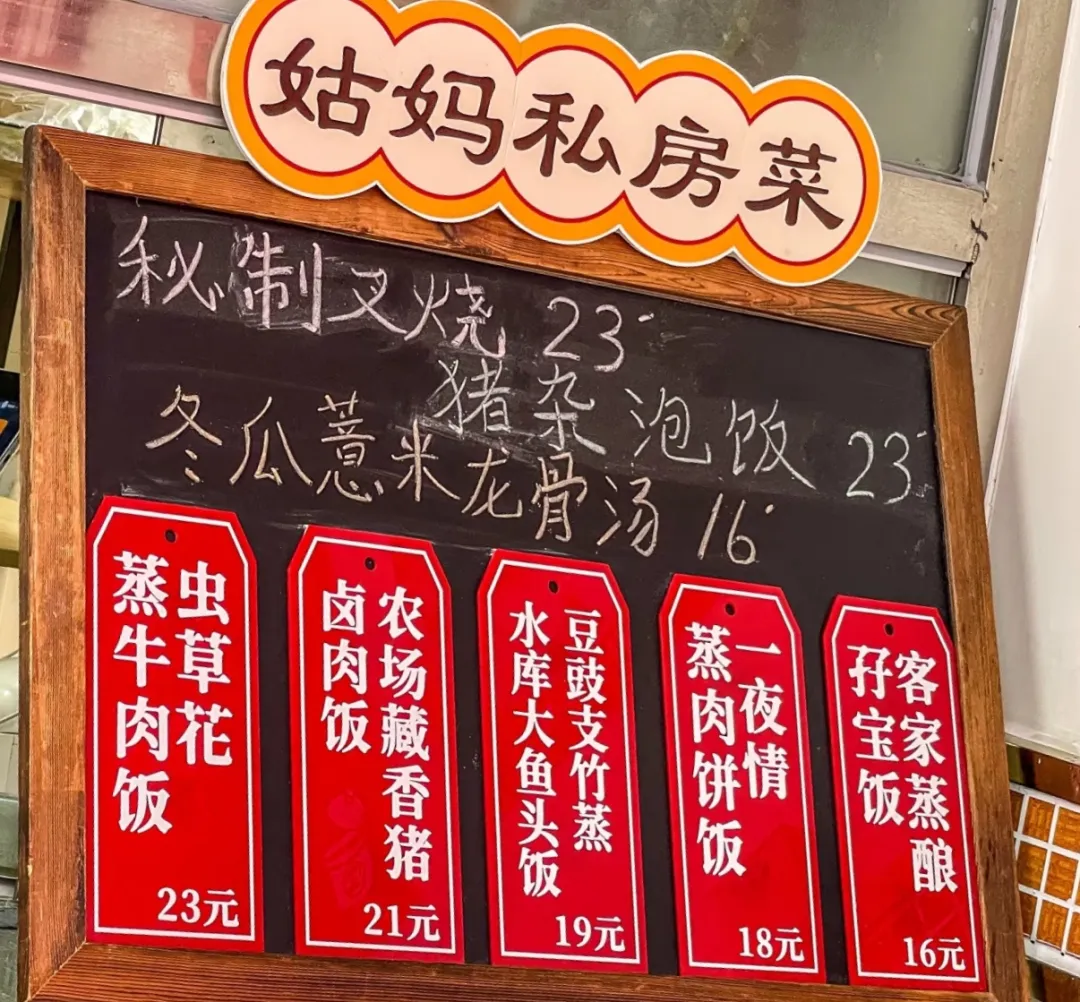 姑妈私房菜
秘制叉烧 23
猪杂泡饭 23
冬瓜薏米龙骨汤 16
虫草花
蒸牛肉饭
23元
农场藏香猪
卤肉饭
21元
豆豉支竹蒸
水库大鱼头饭
19元
一夜情
蒸肉饼饭
18元
客家蒸酿
孖宝饭
16元